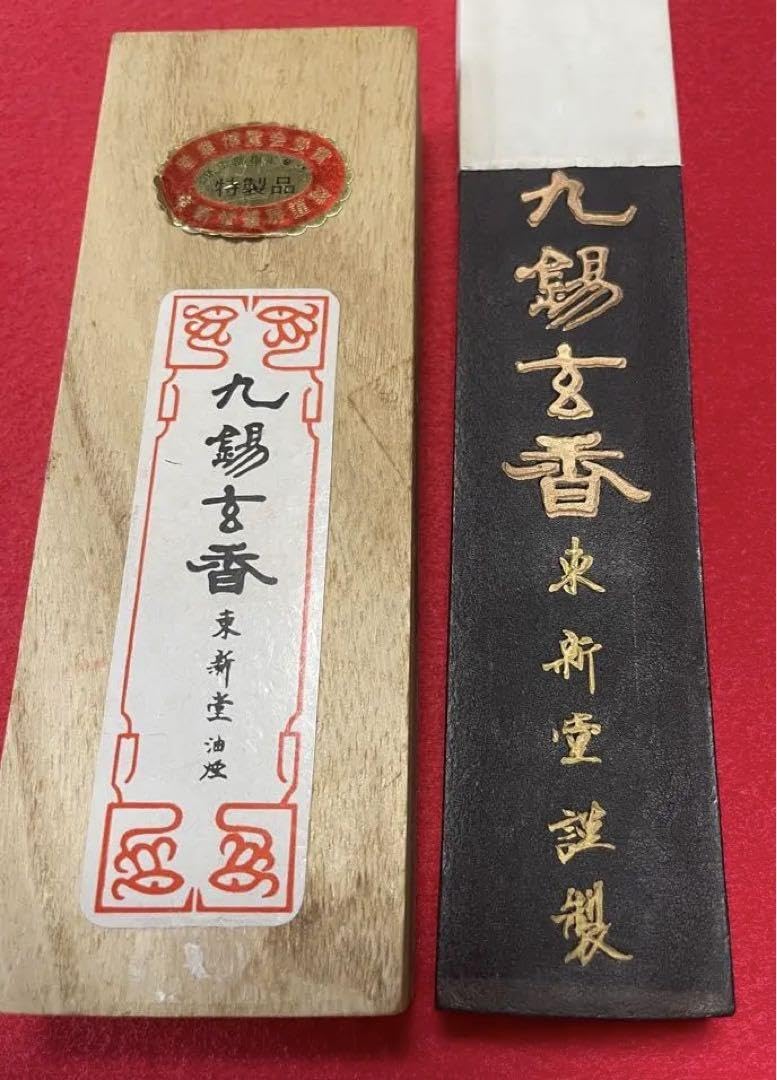 特製品
九錫玄香
東新堂
油煙
九錫玄香
東新堂謹製